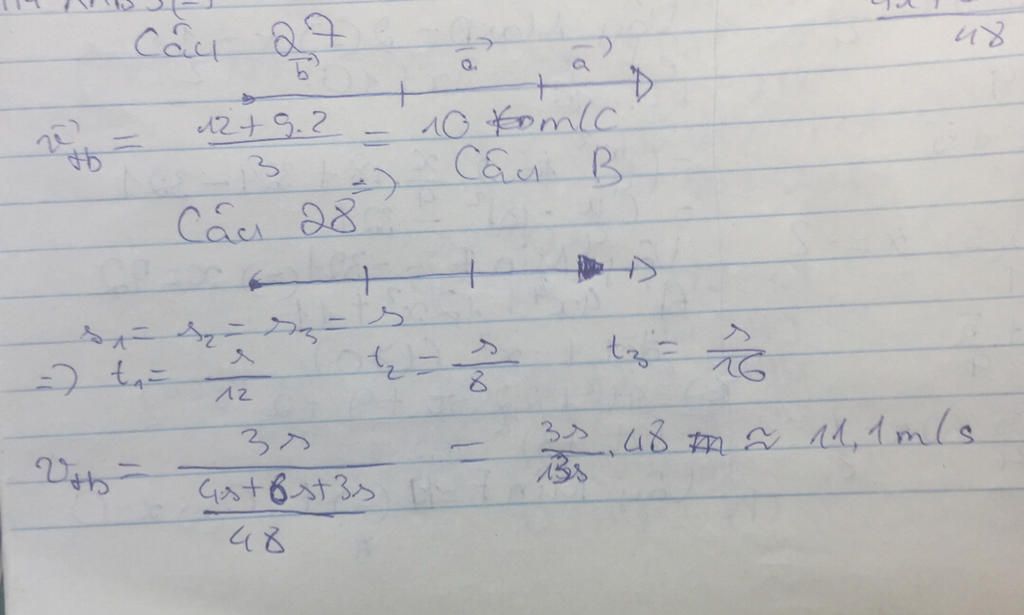 48
Câu 27
b a a
v_tb = (12 + 9.2)/3 = 10 m/s
=> Câu B
Câu 28
s_1 = s_2 = s_3 = s
=> t_1 = s/12 t_2 = s/8 t_3 = s/16
v_tb = 3s/((4s+6s+3s)/48) = 3s/13s . 48 ≈ 11,1 m/s